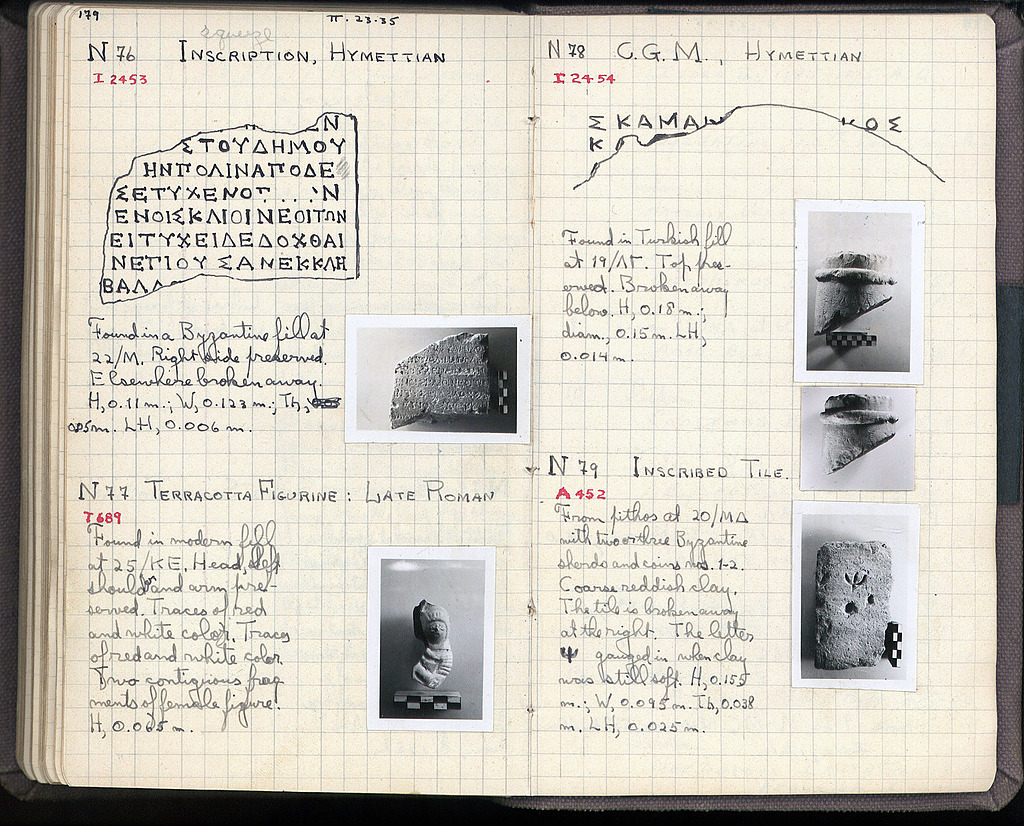 179
II. 23.35
squeeze
N 76 INSCRIPTION, HYMETTIAN
I 2453
Ν
ΣΤΟΥΔΗΜΟΥ
ΗΝΠΟΛΙΝΑΠΟΔΕ
ΣΕΤΥΧΕΝΟΓ...Ν
ΕΝΟΙΣΚΛΙΟΙΝΕΟΙΤΩΝ
ΕΙΤΥΧΕΙΔΕΔΟΧΘΑΙ
ΝΕΓΙΟΥΣΑΝΕΚΚΛΗ
ΒΑΛΛ
Found in a Byzantine fill at
22/M. Right side preserved.
Elsewhere broken away.
H, 0.11 m.; W, 0.123 m.; Th,
05m. LH, 0.006 m.
N 77 TERRACOTTA FIGURINE: LATE ROMAN
T 689
Found in modern fill
at 25/ΚΕ. Head, left
should and arm pre-
served. Traces of red
and white color. Traces
of red and white color.
Two contiguous frag
ments of female figure.
H, 0.065 m.
N 78 C.G.M., HYMETTIAN
I 2454
ΣΚΑΜΑΝ ΚΟΣ
Κ
Found in Turkish fill
at 19/ΛΓ. Top pres-
erved. Broken away
below. H, 0.18 m.;
diam., 0.15 m. LH,
0.014 m.
N 79 INSCRIBED TILE.
A 452
From pithos at 20/ΜΔ
with two or three Byzantine
sherds and coins nos. 1-2.
Coarse reddish clay.
The tile is broken away
at the right. The letter
Ψ gouged in when clay
was still soft. H, 0.155
m.; W, 0.095 m. Th, 0.038
m. LH, 0.025 m.